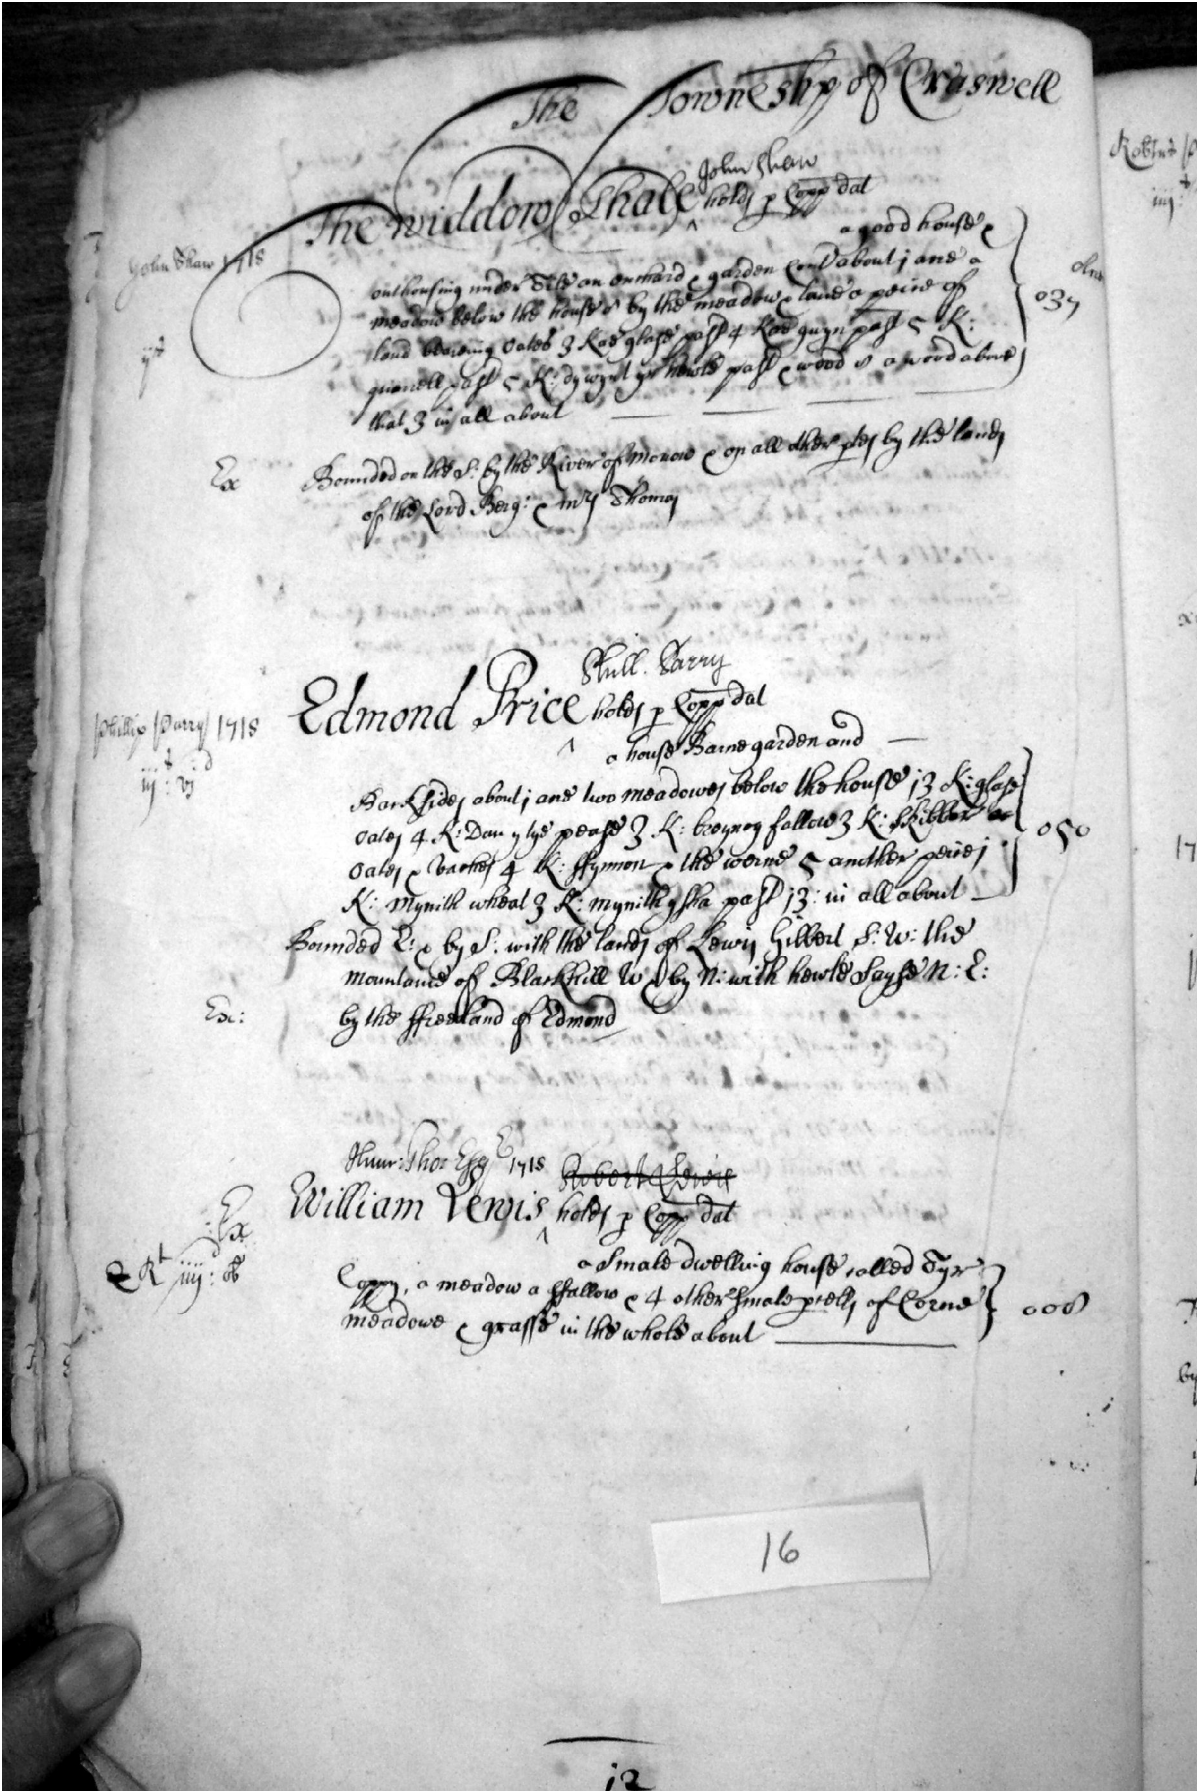 The Towneshp of Craswell
John Shaw
The widdow Shaħe holds p Copp dat
John Shaw 1718
a good house &
outhousing under Tile an orchard & garden cont about j acre a
meadow below the house & by the meadow & lane a peice of
land bearing oates 3 Kae glase past 4 Kae gwyn past 5 K:
past 5 K: past & wood & a wood above
that 3 in all about
Acres
037
ijs
Ex
Bounded on the S: by the River of Monow & on all other ptes by the lands
of the Lord Berg: & mrs Thomas
Parry
Edmond Price holds p Copp dat
Phillip Parry 1718
iijs : vjd
a house Barne garden and
Backsides about j acre two meadowes below the house j3 K: glase
oates 4 K: Dan y tye pease 3 K: fallow 3 K: Skibbor
oates & vaches 4 K: ffynnon & the worme 5 another peice j
K: Mynith wheat 3 K: mynith ysha past j3: in all about
050
Bounded E: & by S: with the lands of Lewis Gilbert S: W: the
mountaine of Blackhill W & by N: with hewle Sayse N: E:
Ex:
by the ffreeland of Edmond
Thos Esqr 1718 Robert Lewis
William Lewis holds p Copp dat
Ex
Rt iiijd : ob
a Smale dwelling house called Tyr
Coppy, a meadow a ffallow & 4 other smale pcells of Corne
meadowe & grasse in the whole about
008
16
12